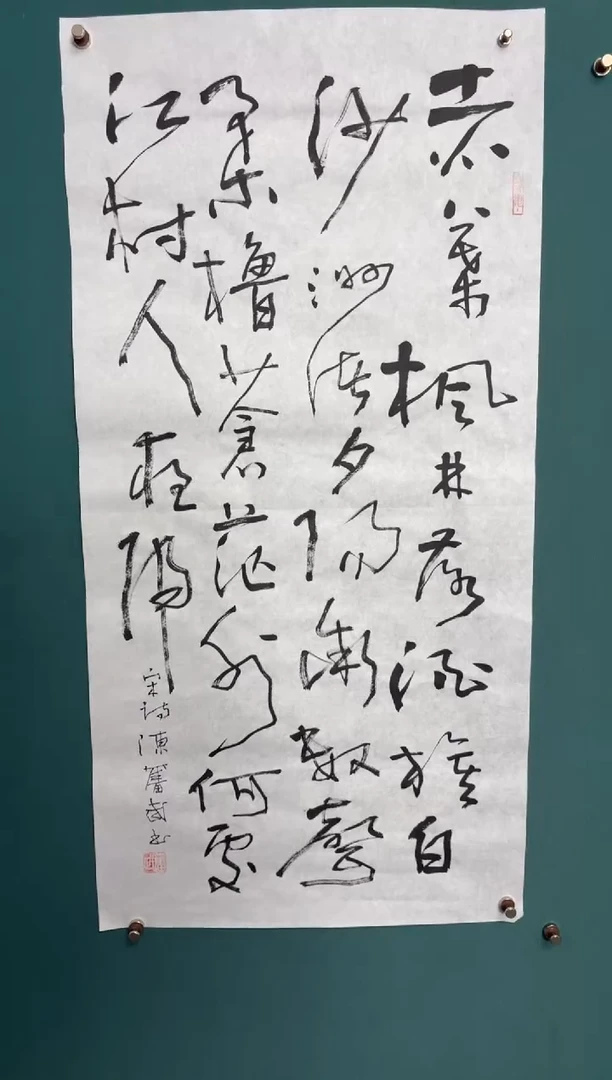 赤葉楓林落酒旗白
沙洲渚夕陽微數聲
柔櫓蒼茫外何處
江村人夜歸
宋詩陳武書